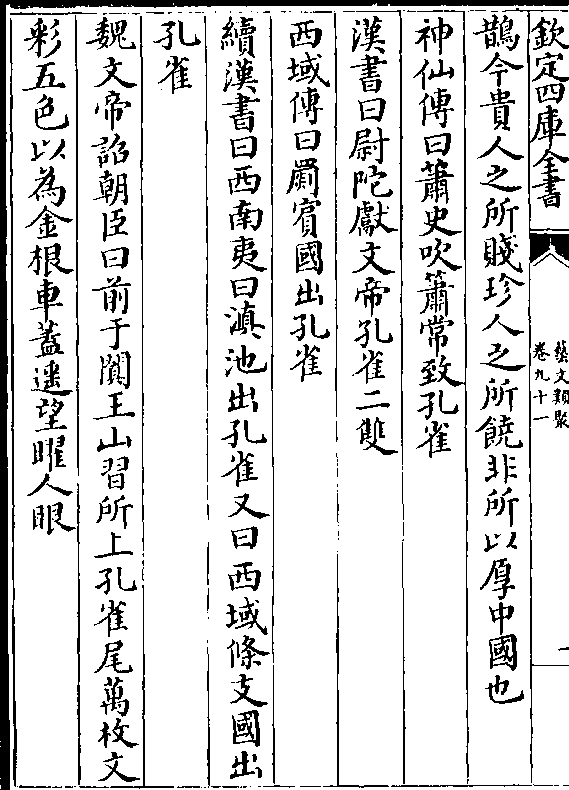 欽定四庫全書
藝文類聚
卷九十一
一
鵲今貴人之所賤珍人之所饒非所以厚中國也
神仙傳曰蕭史吹簫常致孔雀
漢書曰尉陀獻文帝孔雀二雙
西域傳曰罽賓國出孔雀
續漢書曰西南夷曰滇池出孔雀又曰西域條支國出
孔雀
魏文帝詔朝臣曰前于闐王山習所上孔雀尾萬枚文
彩五色以為金根車蓋遥望曜人眼